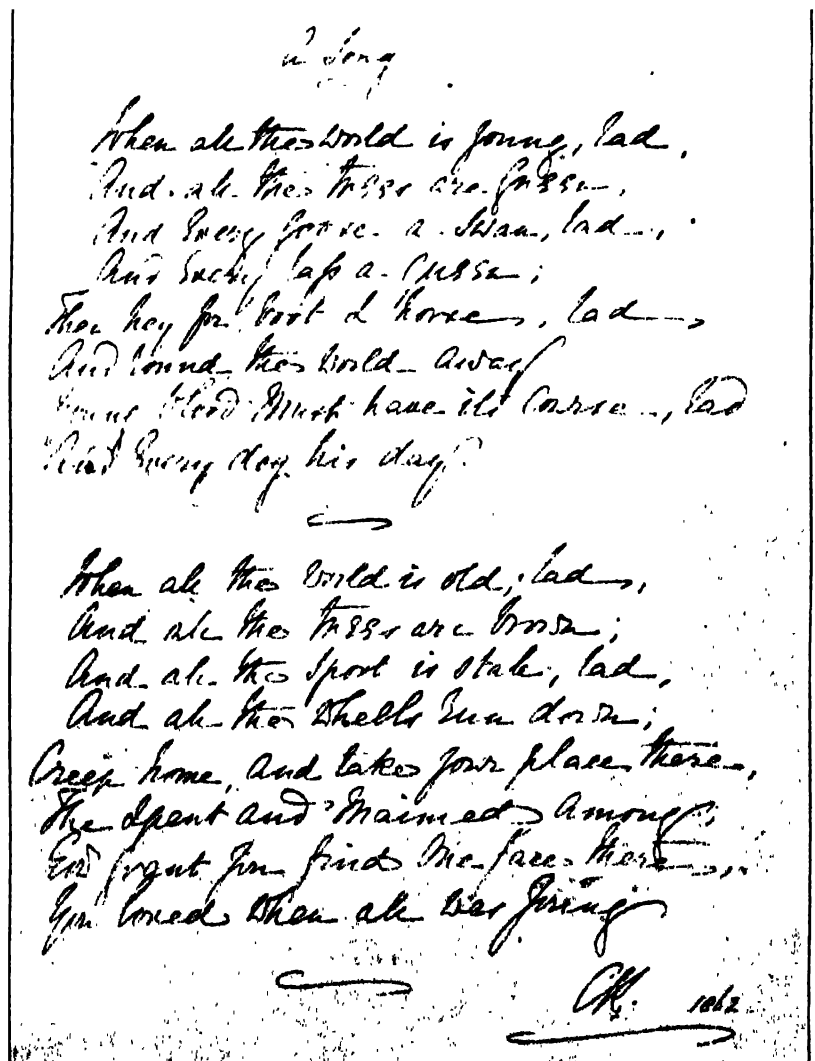 A Song
When all the world is young, lad,
And all the trees are green,
And every goose a swan, lad,
And every lass a queen;
Then hey for boot & horse, lad,
And round the world away
Young blood must have its course, lad
And every dog his day.
When all the world is old, lad,
And all the trees are brown;
And all the sport is stale, lad,
And all the wheels run down;
Creep home, and take your place there,
The spent and maimed among;
God grant you find one face there,
You loved when all was young
CK. 1862